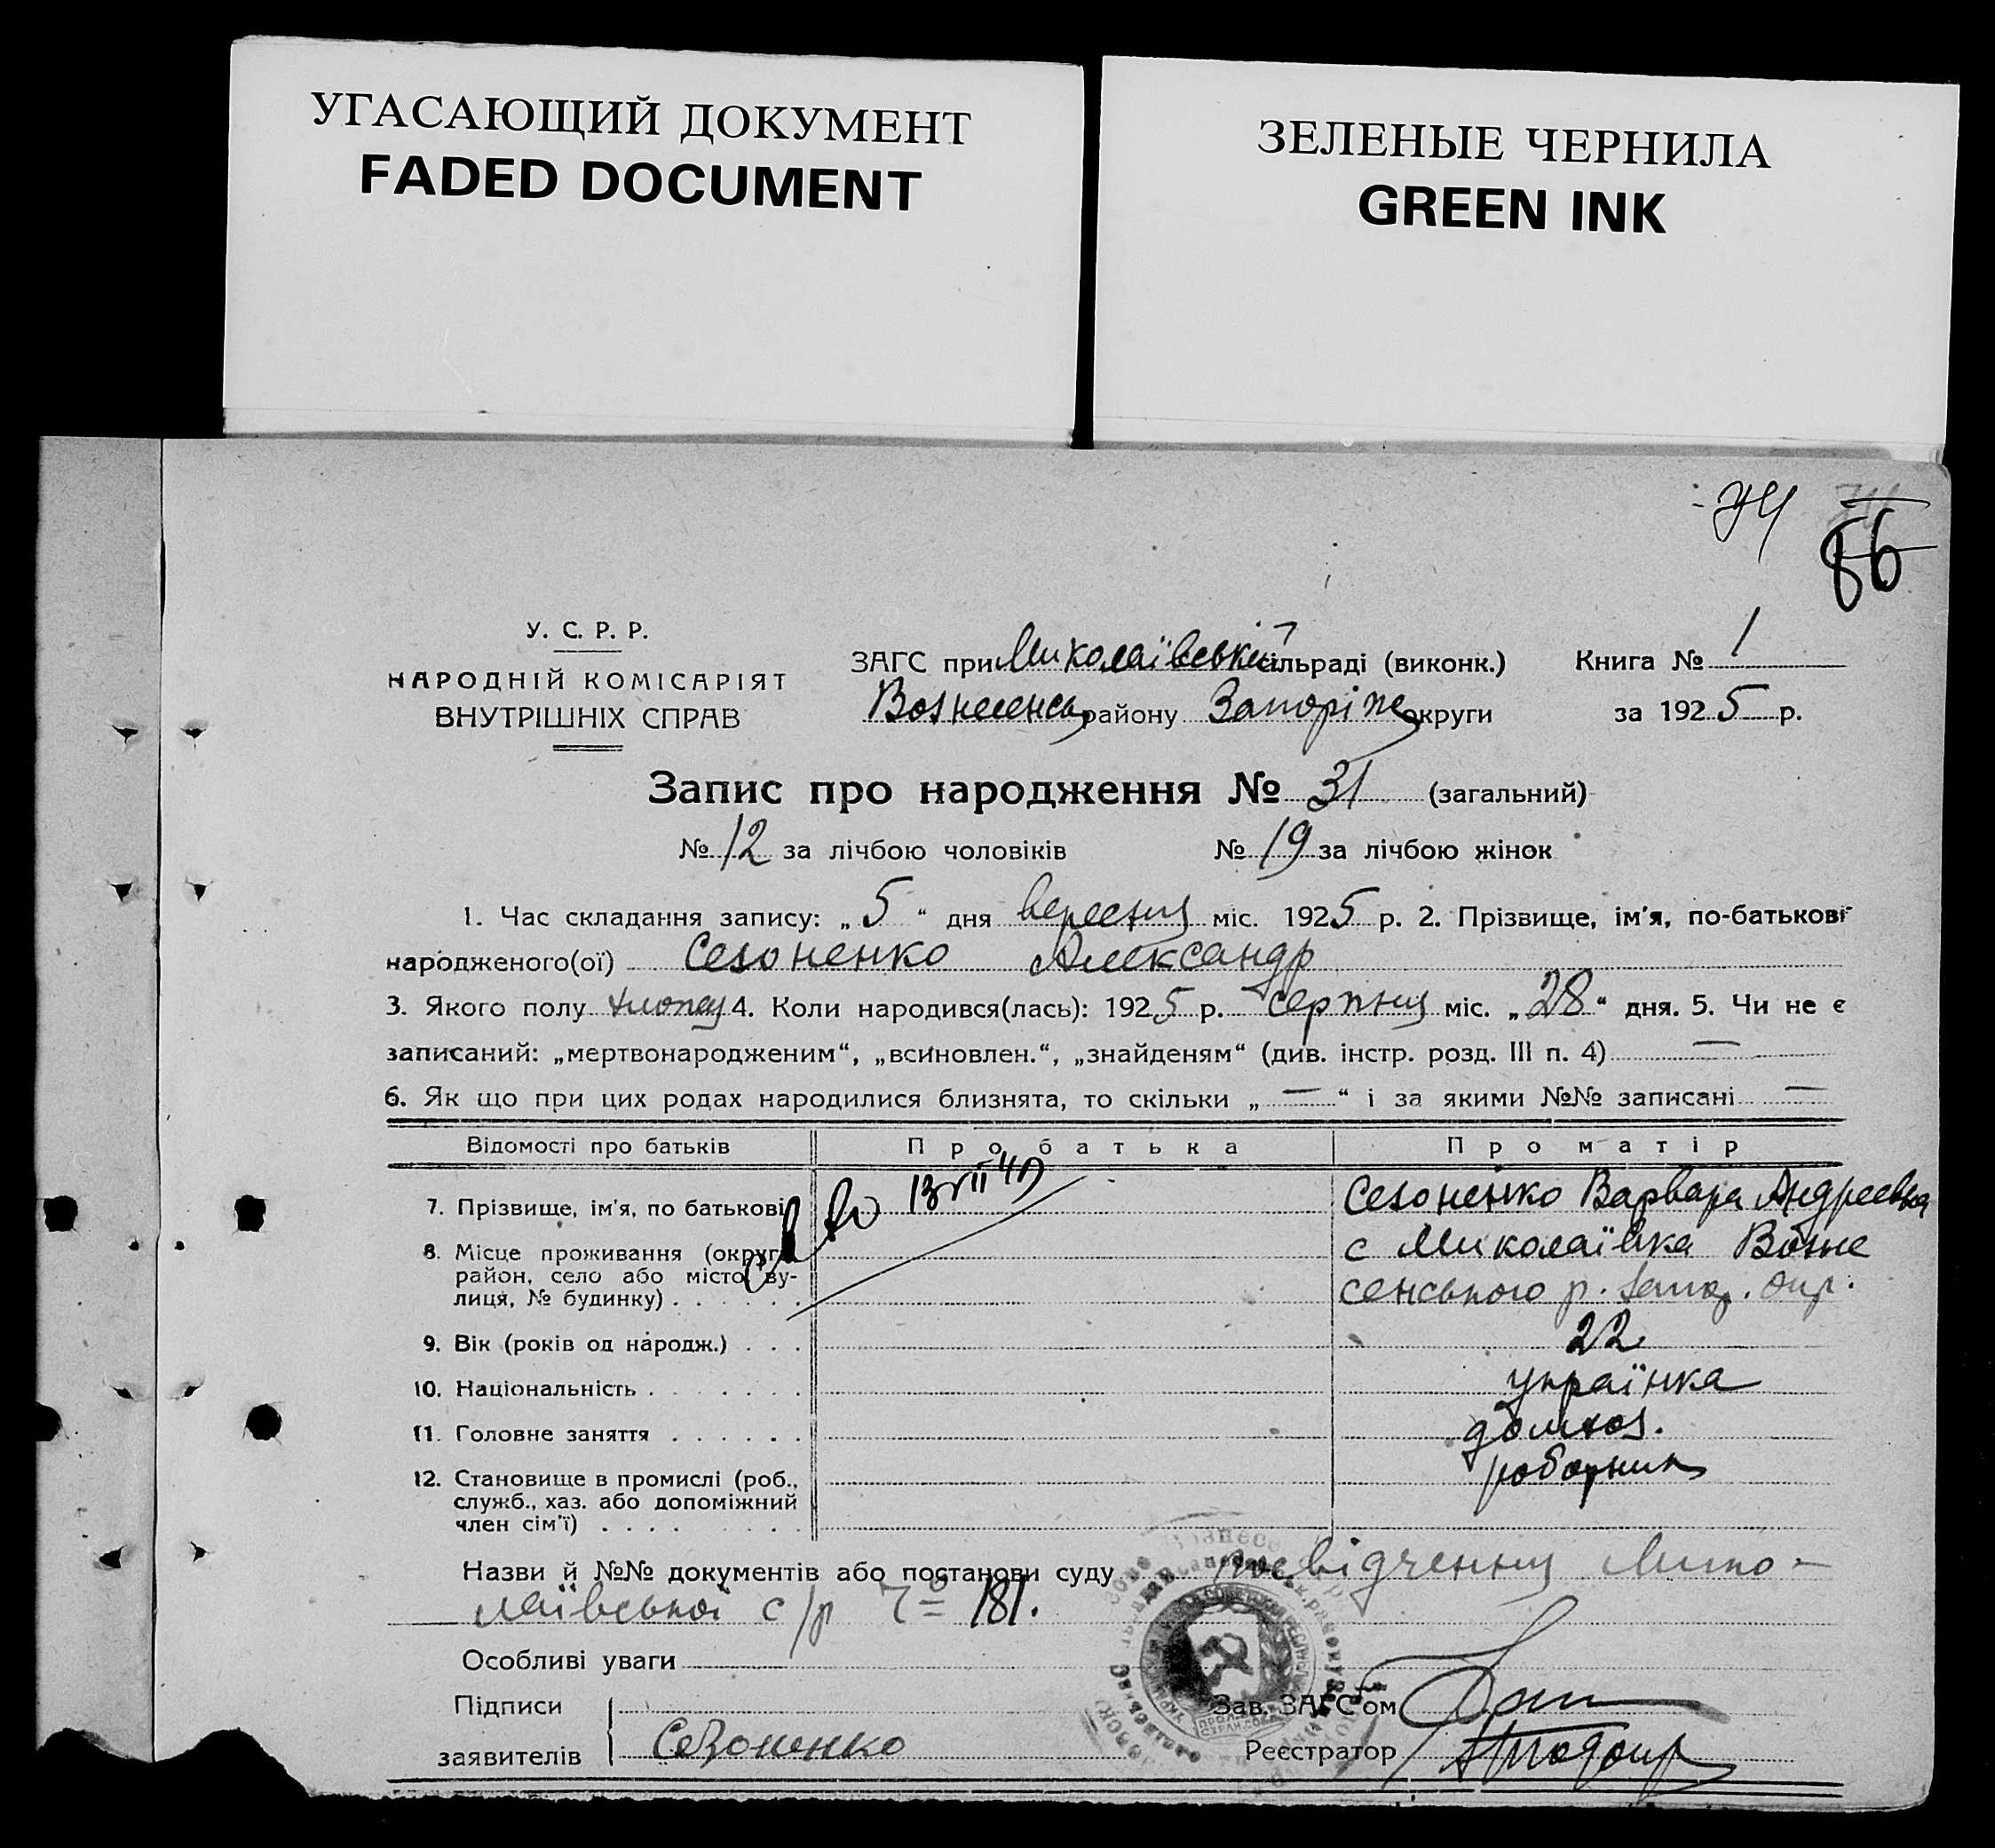 УГАСАЮЩИЙ ДОКУМЕНТ
FADED DOCUMENT
ЗЕЛЕНЫЕ ЧЕРНИЛА
GREEN INK
74
86
У. С. Р. Р.
НАРОДНІЙ КОМІСАРІЯТ
ВНУТРІШНІХ СПРАВ
ЗАГС при Миколаївській сільраді (виконк.)
Вознесенськ району Запоріж округи
Книга № 1
за 1925 р.
Запис про народження № 31 (загальний)
№ 12 за лічбою чоловіків № 19 за лічбою жінок
1. Час складання запису: „5“ дня вересня міс. 1925 р. 2. Прізвище, ім'я, по-батькові
народженого(ої) Сезоненко Александр
3. Якого полу хлопец 4. Коли народився(лась): 1925 р. серпня міс. „28“ дня. 5. Чи не є
записаний: „мертвонародженим“, „всиновлен.“, „знайденям“ (див. інстр. розд. III п. 4) —
6. Як що при цих родах народилися близнята, то скільки „—“ і за якими №№ записані —
Відомості про батьків Про батька Про матір
7. Прізвище, ім'я, по батькові Сезоненко Варвара Андреевна
8. Місце проживання (округа, с Миколаївка Возне
район, село або місто, ву-
лиця, № будинку) . . . . . . сенського р. Запор. окр.
9. Вік (років од народж.) . . . 22
10. Національність . . . . . . . українка
11. Головне заняття . . . . . . домхоз.
12. Становище в промислі (роб.,
служб., хаз. або допоміжний
член сім'ї) . . . .
Назви й №№ документів або постанови суду посвідчення Мико-
лаївської с/р № 181.
Особливі уваги
Підписи
заявителів Сезоненко
Зав. ЗАГС'ом
Реєстратор